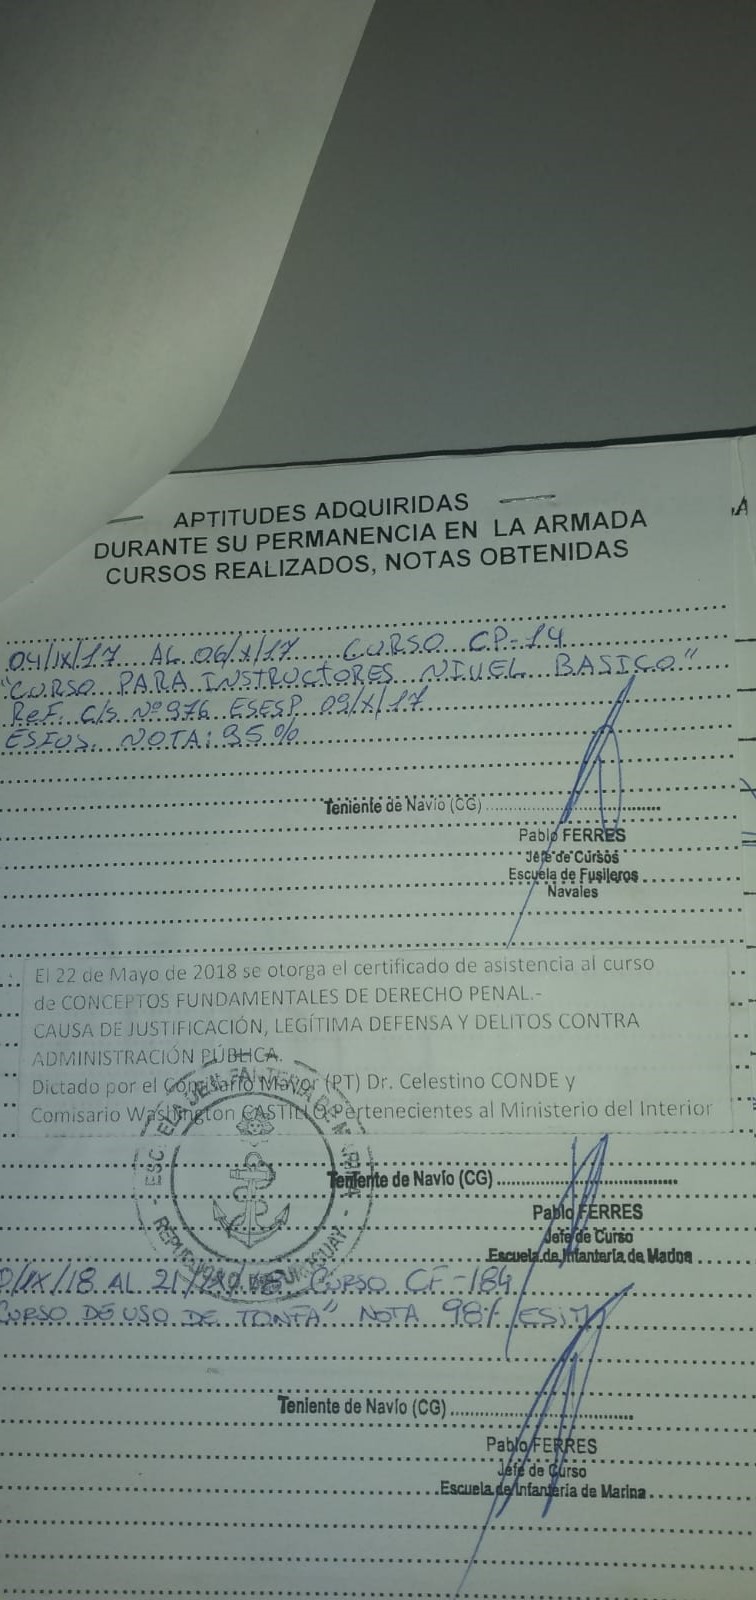 APTITUDES ADQUIRIDAS
DURANTE SU PERMANENCIA EN LA ARMADA
CURSOS REALIZADOS, NOTAS OBTENIDAS
04/IX/17 AL 06/X/17 CURSO CP-14
"CURSO PARA INSTRUCTORES NIVEL BASICO"
Ref. C/S Nº 976 ESESP 09/X/17
ESFUS. NOTA: 95%
Teniente de Navío (CG)
Pablo FERRES
Jefe de Cursos
Escuela de Fusileros
Navales
El 22 de Mayo de 2018 se otorga el certificado de asistencia al curso
de CONCEPTOS FUNDAMENTALES DE DERECHO PENAL.-
CAUSA DE JUSTIFICACIÓN, LEGÍTIMA DEFENSA Y DELITOS CONTRA
ADMINISTRACIÓN PÚBLICA.
Dictado por el Comisario Mayor (PT) Dr. Celestino CONDE y
Comisario Washington CASTILLO Pertenecientes al Ministerio del Interior
Teniente de Navío (CG)
Pablo FERRES
Jefe de Curso
Escuela de Infantería de Marina
/IX/18 AL 21/ CURSO CF-184
CURSO DE USO DE TONFA" NOTA 98%
Teniente de Navío (CG)
Pablo FERRES
Jefe de Curso
Escuela de Infantería de Marina